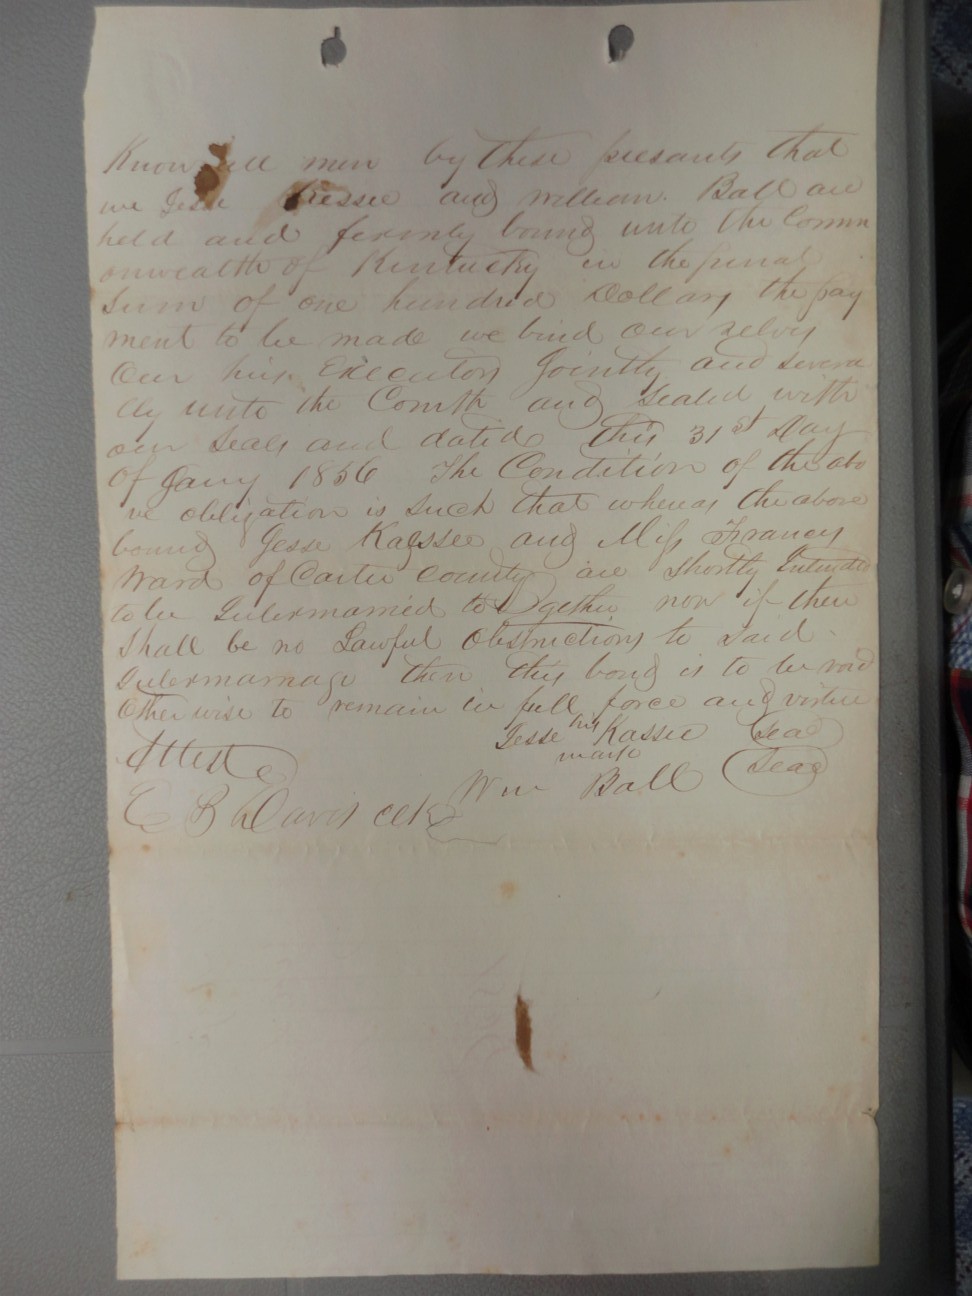 Know all men by these presants that
we Jesse Kessee and William Ball are
held and firmly bound unto the Comm
onwealth of Kentucky in the penal
Sum of one hundred Dollars the pay
ment to be made we bind our selvs
Our hirs Executors Jointly and severa
lly unto the Comth and Sealed with
our Seals and dated this 31st Day
of Jany 1856 The Condition of the abo
ve obligation is such that whereas the above
bound Jesse Kassee and Miss Francis
Ward of Carter County are shortly
to be Intermarried to gether now if there
Shall be no Lawful Obstructions to said
Intermarriage then this bond is to be void
Otherwise to remain in full force and virtue
Jesse his Kassee Seal
mark
Attest
Wm Ball Seal
E B Davis clk